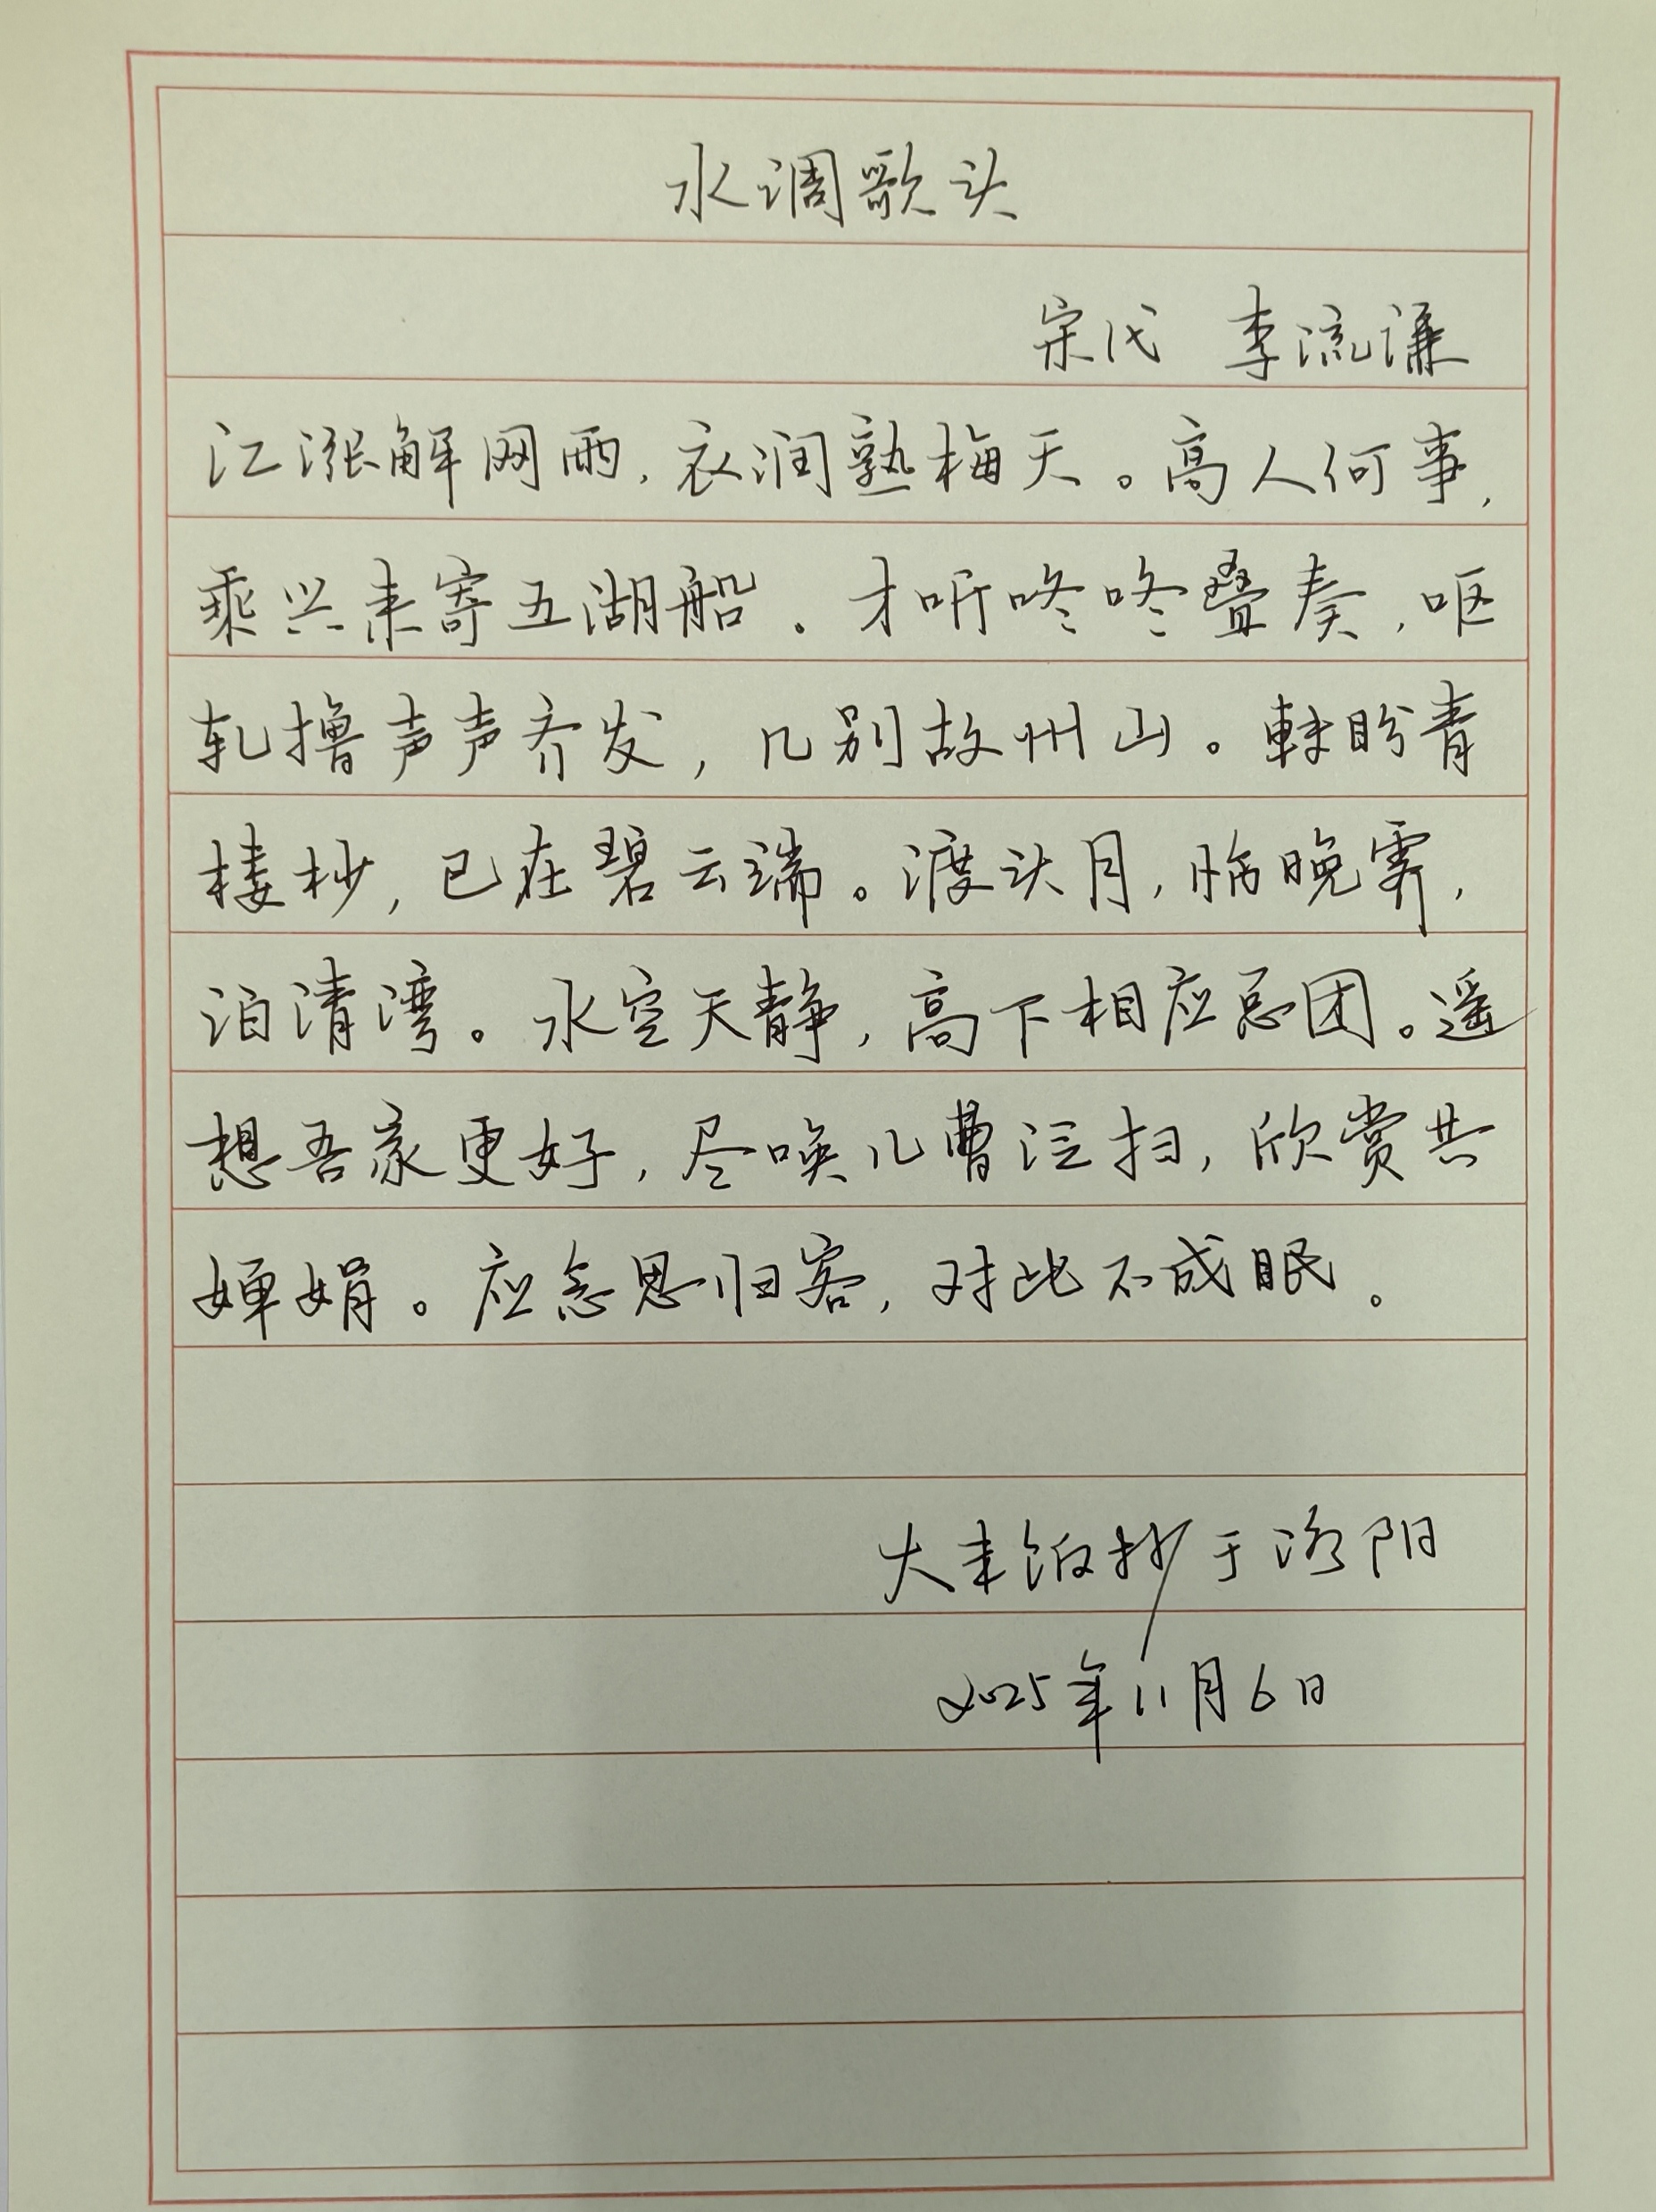 水调歌头
宋代 李流谦
江涨解网雨,衣润熟梅天。高人何事,
乘兴来寄五湖船。才听咚咚叠奏,呕
轧撸声声齐发,几别故州山。转盼青
楼杪,已在碧云端。渡头月,临晚霁,
泊清湾。水空天静,高下相应总团。遥
想吾家更好,尽唤儿曹泛扫,欣赏共
婵娟。应念思归客,对此不成眠。
大来饭抄于洛阳
2025年11月6日